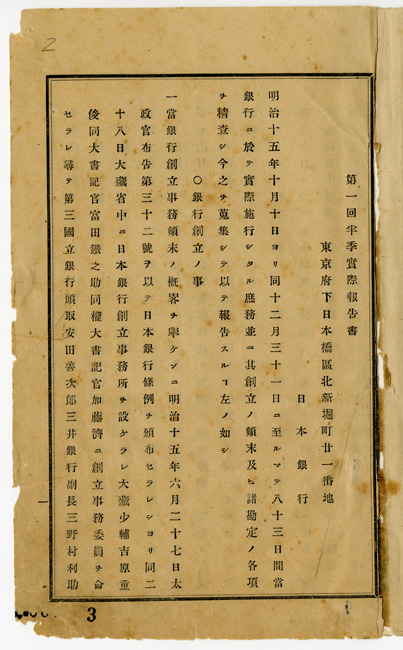 第一回半季實際報告書
東京府下日本橋區北新堀町廿一番地
日本銀行
明治十五年十月十日ヨリ同十二月三十一日ニ至ルマテ八十三日間當
銀行ニ於テ實際施行シタル庶務並ニ其創立ノ顛末及ヒ諸勘定ノ各項
ヲ精査シ今之ヲ蒐集シテ以テ報告スルヿ左ノ如シ
〇銀行創立ノ事
一當銀行創立事務顛末ノ概畧ヲ擧ケンニ明治十五年六月二十七日太
政官布告第三十二號ヲ以テ日本銀行條例ヲ頒布セラレシヨリ同二
十八日大藏省中ニ日本銀行創立事務所ヲ設ケラレ大藏少輔吉原重
俊同大書記官富田鐵之助同權大書記官加藤濟ニ創立事務委員ヲ命
セラレ尋テ第三國立銀行頭取安田善次郎三井銀行副長三野村利助
一
2
3